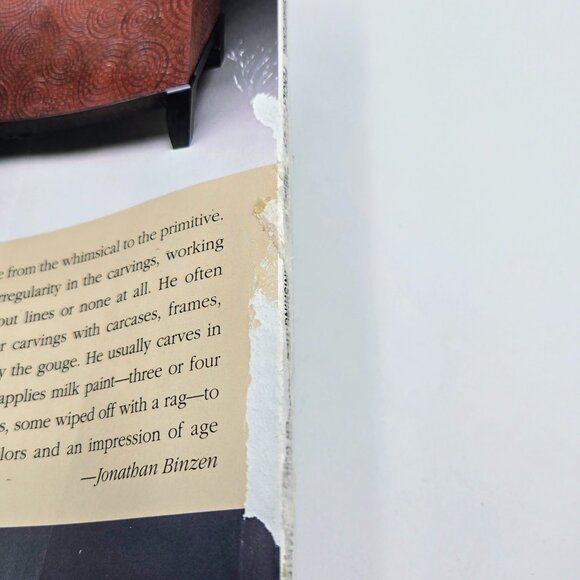 e from the whimsical to the primitive.
rregularity in the carvings, working
out lines or none at all. He often
r carvings with carcases, frames,
y the gouge. He usually carves in
applies milk paint—three or four
s, some wiped off with a rag—to
lors and an impression of age
—Jonathan Binzen